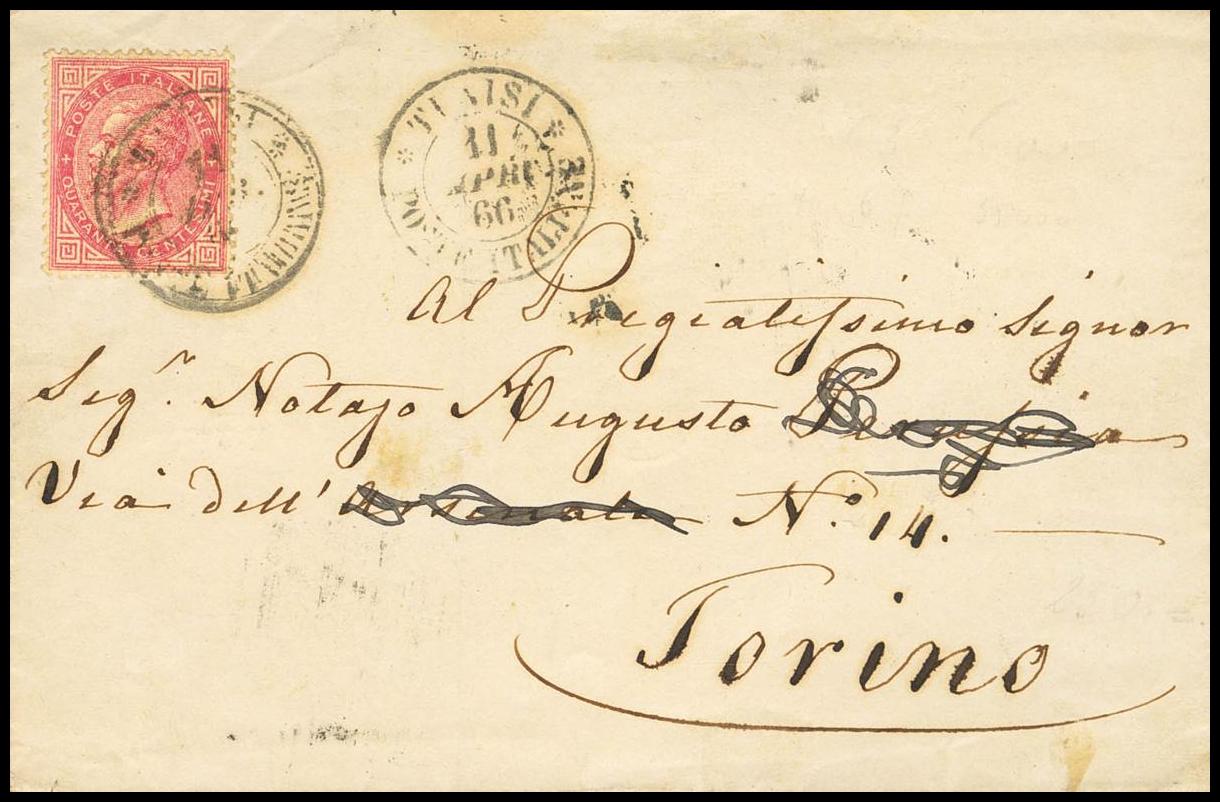 POSTE ITALIANE
QUARANTA CENTESIMI
TUNISI
11
APR
66
POSTE ITALIANE
Al Pregiatissimo Signor
Sig.r Notajo Augusto
Via dell' Arsenale N.o 14.
Torino